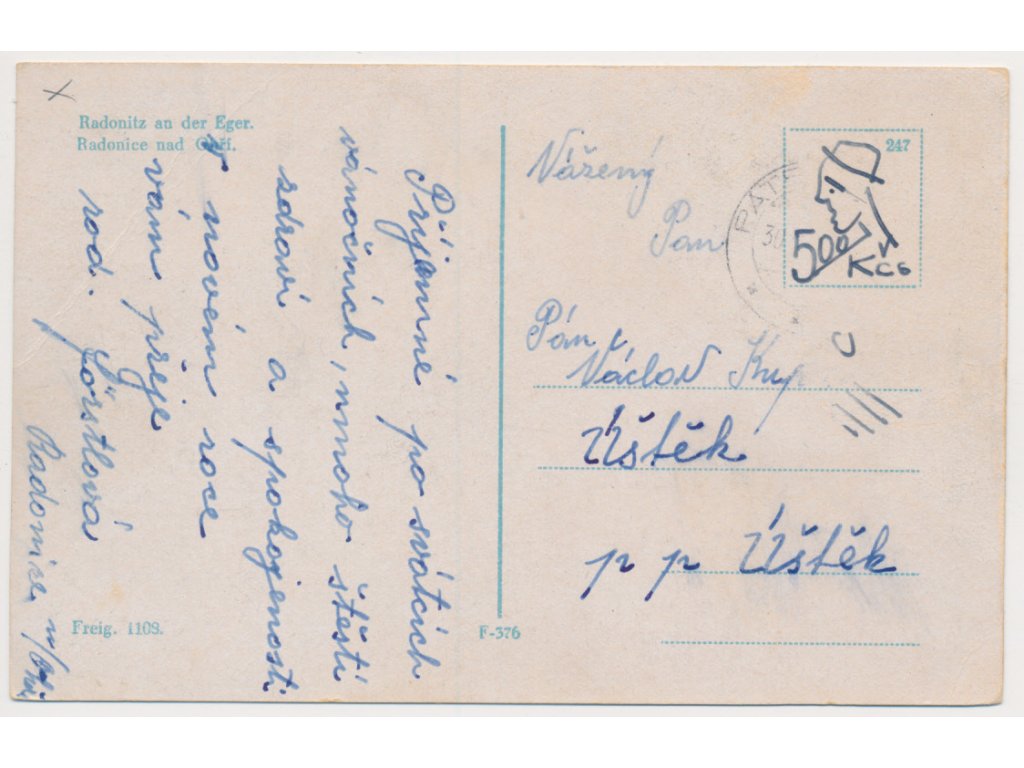 Radonitz an der Eger.
Radonice nad Ohří.
Příjemné po svátcích
vánočních, mnoho štěstí
zdraví a spokojenosti
v novém roce
vám přeje
rod.Förstlová
Radonice n/Ohří
Freig. 1108.
F-376
247
500 Kčs
30
Vážený
Pan
Pán
Václav
Úštěk
p p Úštěk